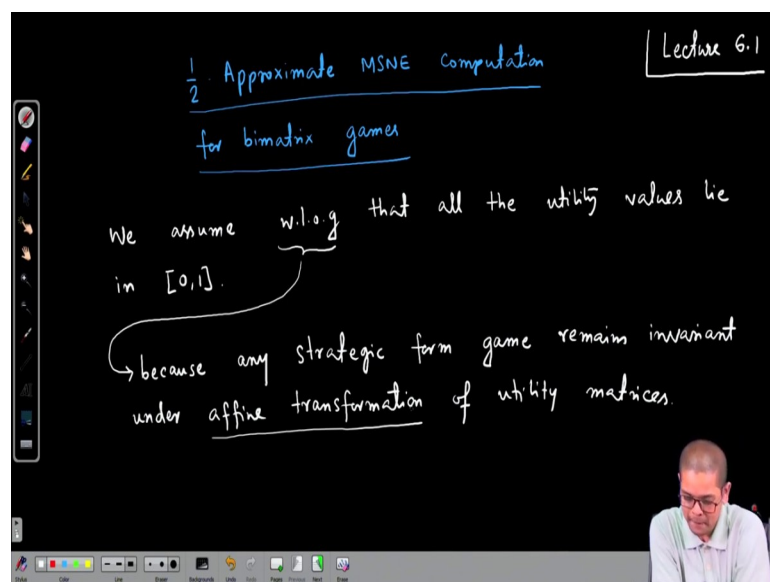 Lecture 6.1
1/2 - Approximate MSNE Computation
for bimatrix games
We assume w.l.o.g that all the utility values lie
in [0,1].
because any strategic form game remain invariant
under affine transformation of utility matrices.
Stylus Color Line Eraser Backgrounds Undo Redo Pages Previous Next Erase